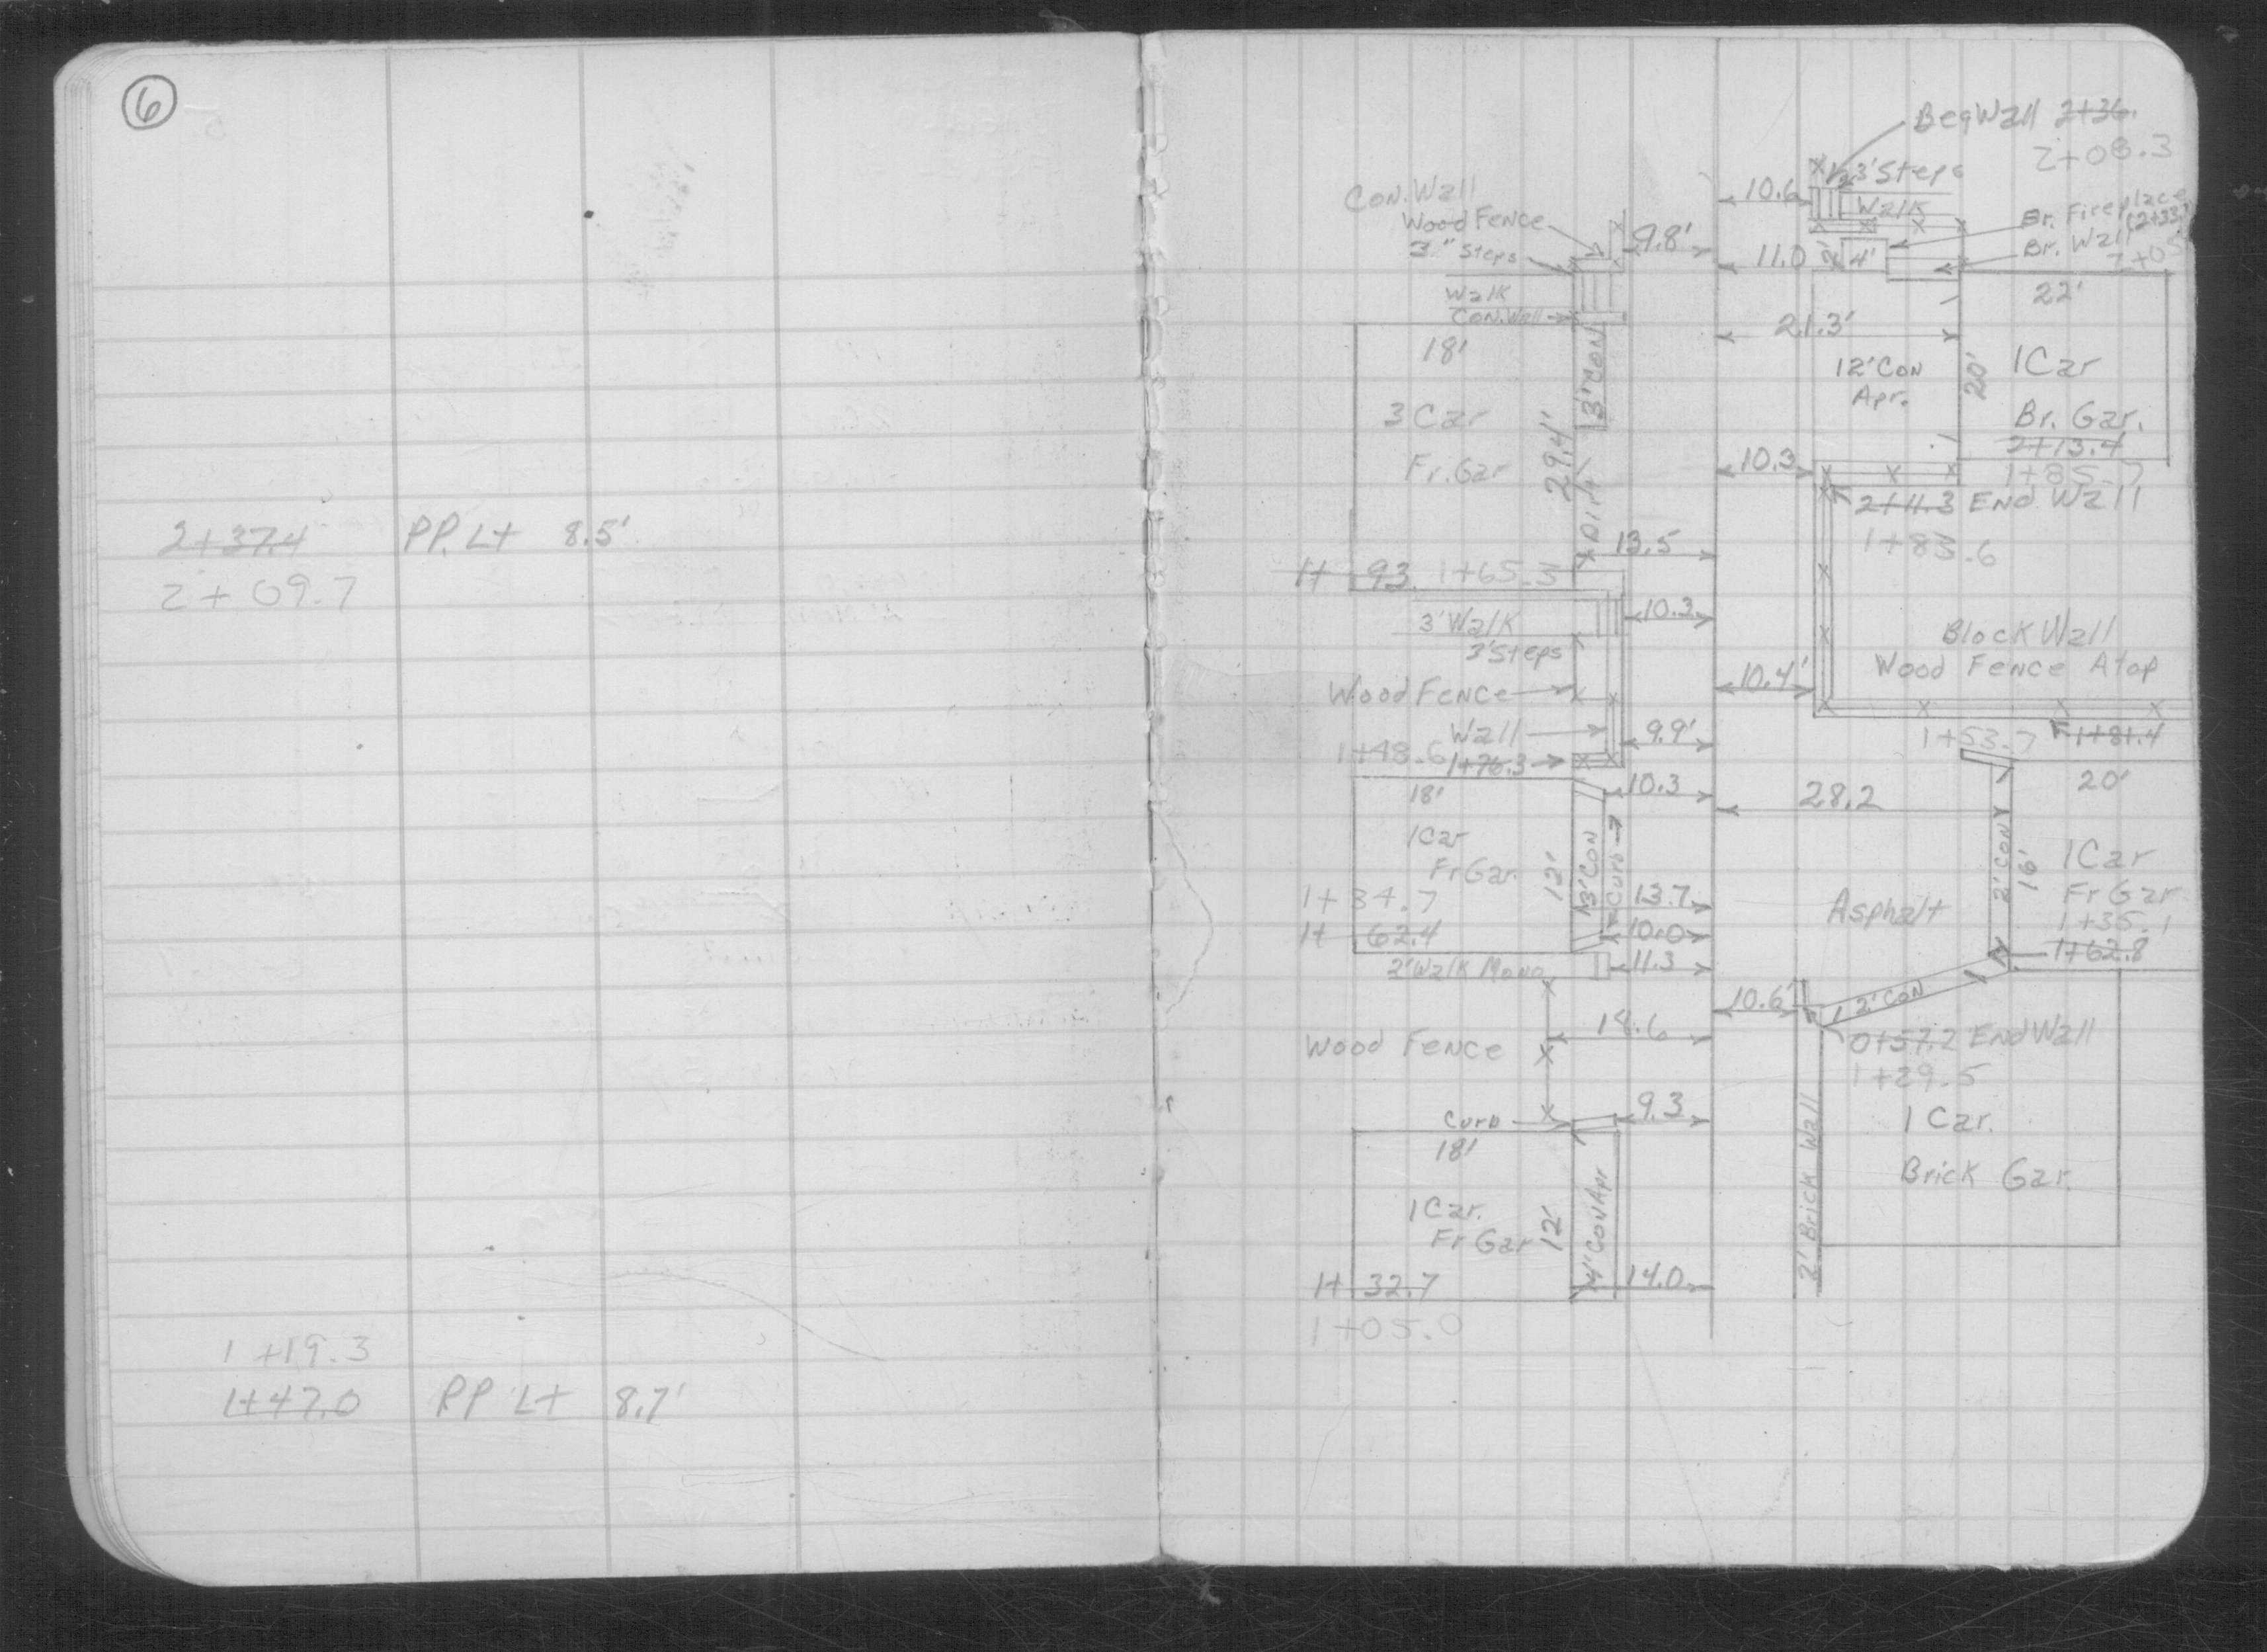 6
2+37.4 PP. Lt 8.5'
2+09.7
1+19.3
1+47.0 PP Lt 8.7'
Beg Wall 2+36.
2+08.3
3' Steps
10.6
Walk
Br. Fireplace
Br. Wall
11.0
4'
Con. Wall
Wood Fence
9.8'
3" Steps
Walk
Con. Wall
22'
21.3'
18'
3' Con
12' Con
Apr.
20'
1 Car
Br. Gar.
2+13.4
1+85.7
3 Car
29.4'
Fr. Gar
Dirt
10.3
2+11.3 End Wall
13.5
1+ 93. 1+65.3
10.3
3' Walk
3' Steps
Block Wall
Wood Fence Atop
10.4'
Wood Fence
Wall
9.9'
1+48.6
1+76.3
1+53.7
1+81.4
18'
10.3
28.2
20'
1 Car
Fr Gar.
12'
3' Con
Curb
2' Con
16'
1 Car
Fr Gar
1+35.1
1+62.8
1+34.7
13.7
1+ 62.4
10.0
Asphalt
2' Walk Mono
11.3
10.6'
2' Con
Wood Fence
14.6
0+57.2 End Wall
1+29.5
Curb
9.3
18'
1 Car.
Brick Gar.
2' Brick Wall
1 Car.
Fr Gar
12'
4' Con Apr
1+ 32.7
14.0
1+05.0